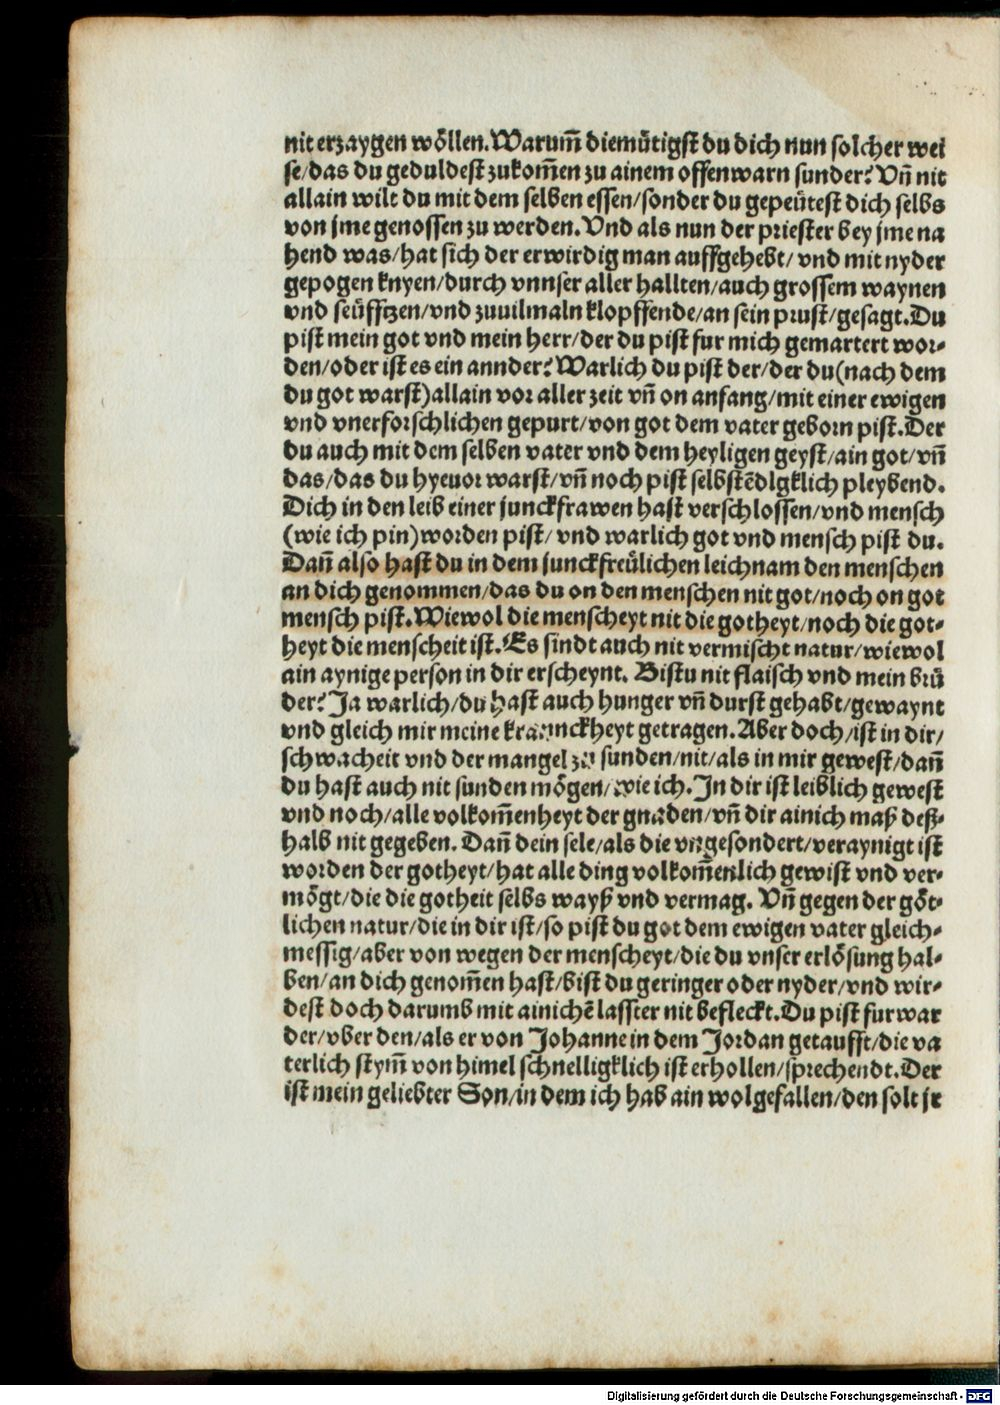 nit erzaygen wöllen. Warum̄ diemütigst du dich nun solcher wei
se/das du geduldest zukom̄en zu ainem offenwarn sunder? Vn̄ nit
allain wilt du mit dem selben essen/sonder du gepeütest dich selbs
von jme genossen zu werden. Vnd als nun der priester bey jme na
hend was/hat sich der erwirdig man auffgehebt/ vnd mit nyder
gepogen knyen/durch vnnser aller hallten/auch grossem waynen
vnd seüfftzen/vnd zuuilmaln klopffende/an sein prust/gesagt. Du
pist mein got vnd mein herr/der du pist fur mich gemartert wor-
den/oder ist es ein annder? Warlich du pist der/der du(nach dem
du got warst)allain vor aller zeit vn̄ on anfang/mit einer ewigen
vnd vnerforschlichen gepurt/von got dem vater geborn pist. Der
du auch mit dem selben vater vnd dem heyligen geyst/ain got/vn̄
das/das du hyeuor warst/vn̄ noch pist selbstēdlgklich pleybend.
Dich in den leib einer junckfrawen hast verschlossen/vnd mensch
(wie ich pin)worden pist/ vnd warlich got vnd mensch pist du.
Dan̄ also hast du in dem junckfreülichen leichnam den menschen
an dich genommen/das du on den menschen nit got/noch on got
mensch pist. Wiewol die menscheyt nit die gotheyt/noch die got-
heyt die menscheit ist. Es sindt auch nit vermischt natur/wiewol
ain aynige person in dir erscheynt. Bistu nit flaisch vnd mein brü
der? Ja warlich/du hast auch hunger vn̄ durst gehabt/gewaynt
vnd gleich mir meine kranckheyt getragen. Aber doch/ist in dir/
schwacheit vnd der mangel zu sunden/nit/als in mir gewest/dan̄
du hast auch nit sunden mögen/wie ich. In dir ist leiblich gewest
vnd noch/alle volkom̄enheyt der gnaden/vn̄ dir ainich maß deß-
halb nit gegeben. Dan̄ dein sele/als die vngesondert/veraynigt ist
worden der gotheyt/hat alle ding volkom̄enlich gewist vnd ver-
mögt/die die gotheit selbs wayß vnd vermag. Vn̄ gegen der göt-
lichen natur/die in dir ist/so pist du got dem ewigen vater gleich-
messig/aber von wegen der menscheyt/die du vnser erlösung hal-
ben/an dich genom̄en hast/bist du geringer oder nyder/vnd wir-
dest doch darumb mit ainichē lasster nit befleckt. Du pist furwar
der/vber den/als er von Johanne in dem Jordan getaufft/die va
terlich stym̄ von himel schnelligklich ist erhollen/sprechendt. Der
ist mein geliebter Son/in dem ich hab ain wolgefallen/den solt jr
Digitalisierung gefördert durch die Deutsche Forschungsgemeinschaft - DFG